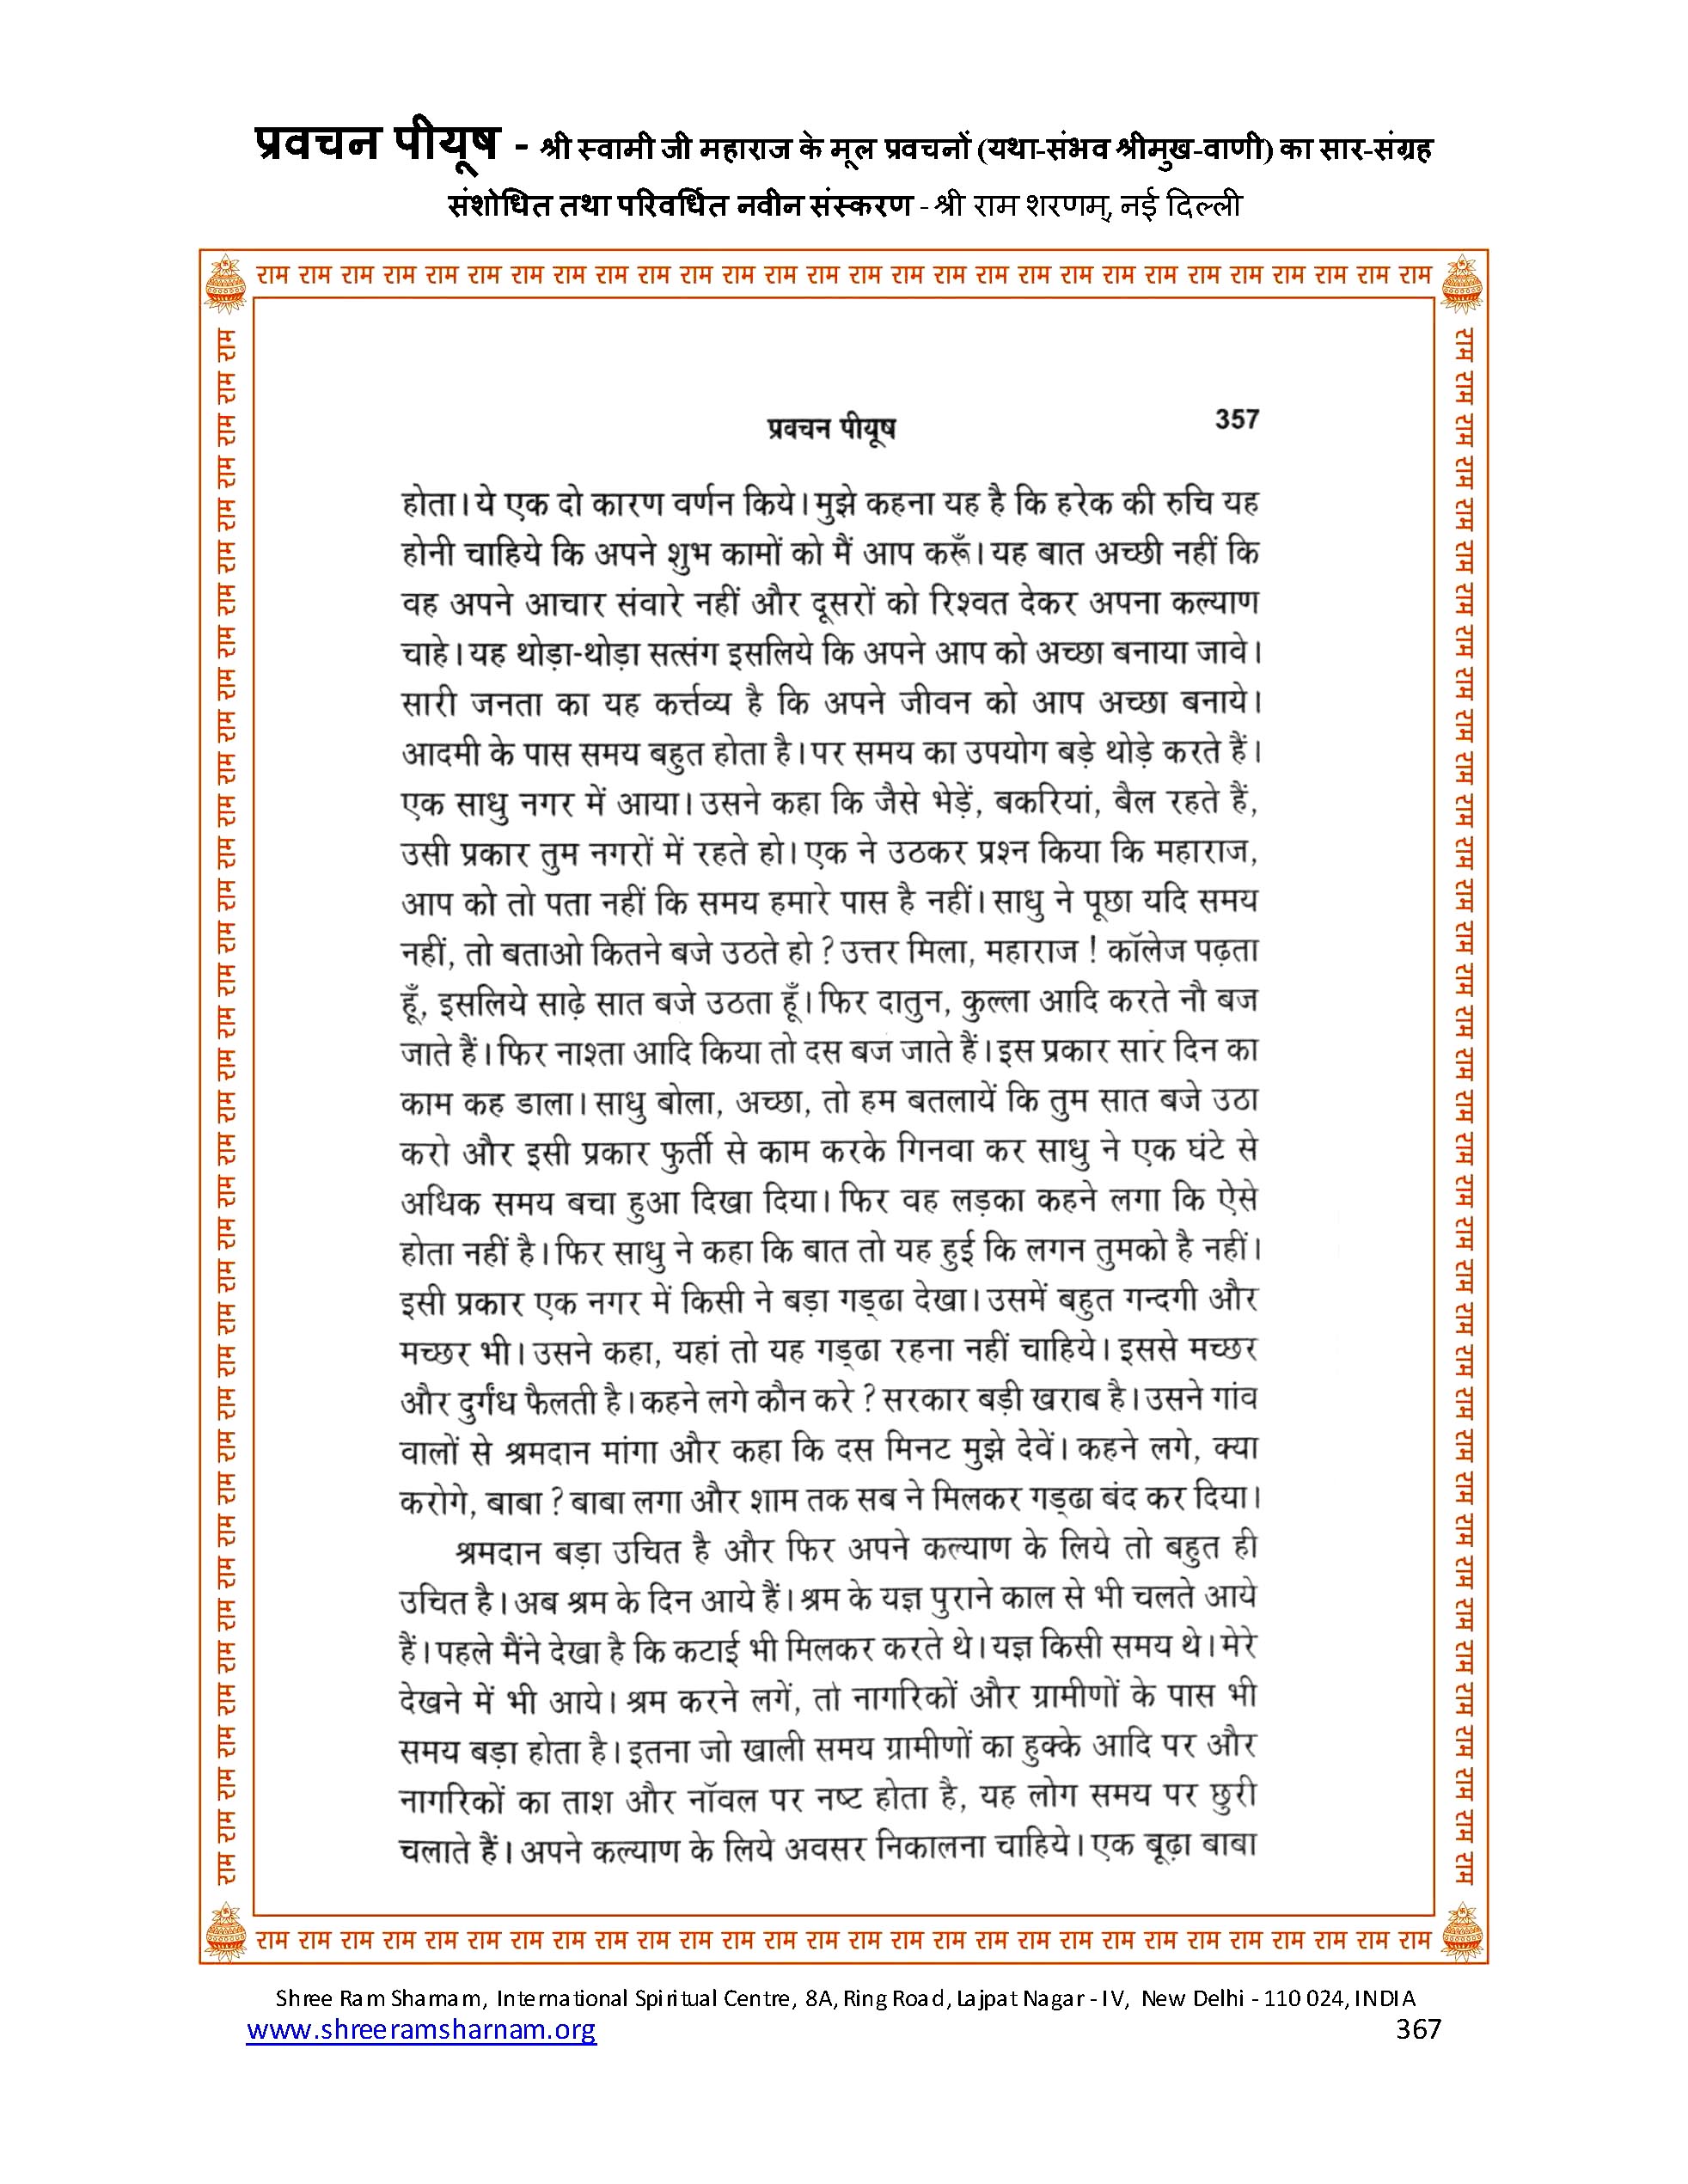 प्रवचन पीयूष - श्री स्वामी जी महाराज के मूल प्रवचनों (यथा-संभव श्रीमुख-वाणी) का सार-संग्रह
संशोधित तथा परिवर्धित नवीन संस्करण - श्री राम शरणम्, नई दिल्ली
राम राम राम राम राम राम राम राम राम राम राम राम राम राम राम राम राम राम राम राम राम राम राम राम राम राम राम राम
प्रवचन पीयूष 357
होता। ये एक दो कारण वर्णन किये। मुझे कहना यह है कि हरेक की रुचि यह
होनी चाहिये कि अपने शुभ कामों को मैं आप करूँ। यह बात अच्छी नहीं कि
वह अपने आचार संवारे नहीं और दूसरों को रिश्वत देकर अपना कल्याण
चाहे। यह थोड़ा-थोड़ा सत्संग इसलिये कि अपने आप को अच्छा बनाया जावे।
सारी जनता का यह कर्त्तव्य है कि अपने जीवन को आप अच्छा बनाये।
आदमी के पास समय बहुत होता है। पर समय का उपयोग बड़े थोड़े करते हैं।
एक साधु नगर में आया। उसने कहा कि जैसे भेड़ें, बकरियां, बैल रहते हैं,
उसी प्रकार तुम नगरों में रहते हो। एक ने उठकर प्रश्न किया कि महाराज,
आप को तो पता नहीं कि समय हमारे पास है नहीं। साधु ने पूछा यदि समय
नहीं, तो बताओ कितने बजे उठते हो ? उत्तर मिला, महाराज ! कॉलेज पढ़ता
हूँ, इसलिये साढ़े सात बजे उठता हूँ। फिर दातुन, कुल्ला आदि करते नौ बज
जाते हैं। फिर नाश्ता आदि किया तो दस बज जाते हैं। इस प्रकार सारे दिन का
काम कह डाला। साधु बोला, अच्छा, तो हम बतलायें कि तुम सात बजे उठा
करो और इसी प्रकार फुर्ती से काम करके गिनवा कर साधु ने एक घंटे से
अधिक समय बचा हुआ दिखा दिया। फिर वह लड़का कहने लगा कि ऐसे
होता नहीं है। फिर साधु ने कहा कि बात तो यह हुई कि लगन तुमको है नहीं।
इसी प्रकार एक नगर में किसी ने बड़ा गड्ढा देखा। उसमें बहुत गन्दगी और
मच्छर भी। उसने कहा, यहां तो यह गड्ढा रहना नहीं चाहिये। इससे मच्छर
और दुर्गंध फैलती है। कहने लगे कौन करे ? सरकार बड़ी खराब है। उसने गांव
वालों से श्रमदान मांगा और कहा कि दस मिनट मुझे देवें। कहने लगे, क्या
करोगे, बाबा ? बाबा लगा और शाम तक सब ने मिलकर गड्ढा बंद कर दिया।
श्रमदान बड़ा उचित है और फिर अपने कल्याण के लिये तो बहुत ही
उचित है। अब श्रम के दिन आये हैं। श्रम के यज्ञ पुराने काल से भी चलते आये
हैं। पहले मैंने देखा है कि कटाई भी मिलकर करते थे। यज्ञ किसी समय थे। मेरे
देखने में भी आये। श्रम करने लगें, तो नागरिकों और ग्रामीणों के पास भी
समय बड़ा होता है। इतना जो खाली समय ग्रामीणों का हुक्के आदि पर और
नागरिकों का ताश और नॉवल पर नष्ट होता है, यह लोग समय पर छुरी
चलाते हैं। अपने कल्याण के लिये अवसर निकालना चाहिये। एक बूढ़ा बाबा
राम राम राम राम राम राम राम राम राम राम राम राम राम राम राम राम राम राम राम राम राम राम राम राम राम राम राम राम
राम राम राम राम राम राम राम राम राम राम राम राम राम राम राम राम राम राम राम राम राम राम राम राम राम राम राम राम राम राम राम राम राम राम राम राम राम
राम राम राम राम राम राम राम राम राम राम राम राम राम राम राम राम राम राम राम राम राम राम राम राम राम राम राम राम राम राम राम राम राम राम राम राम राम
Shree Ram Sharnam, International Spiritual Centre, 8A, Ring Road, Lajpat Nagar - IV, New Delhi - 110 024, INDIA
www.shreeramsharnam.org 367